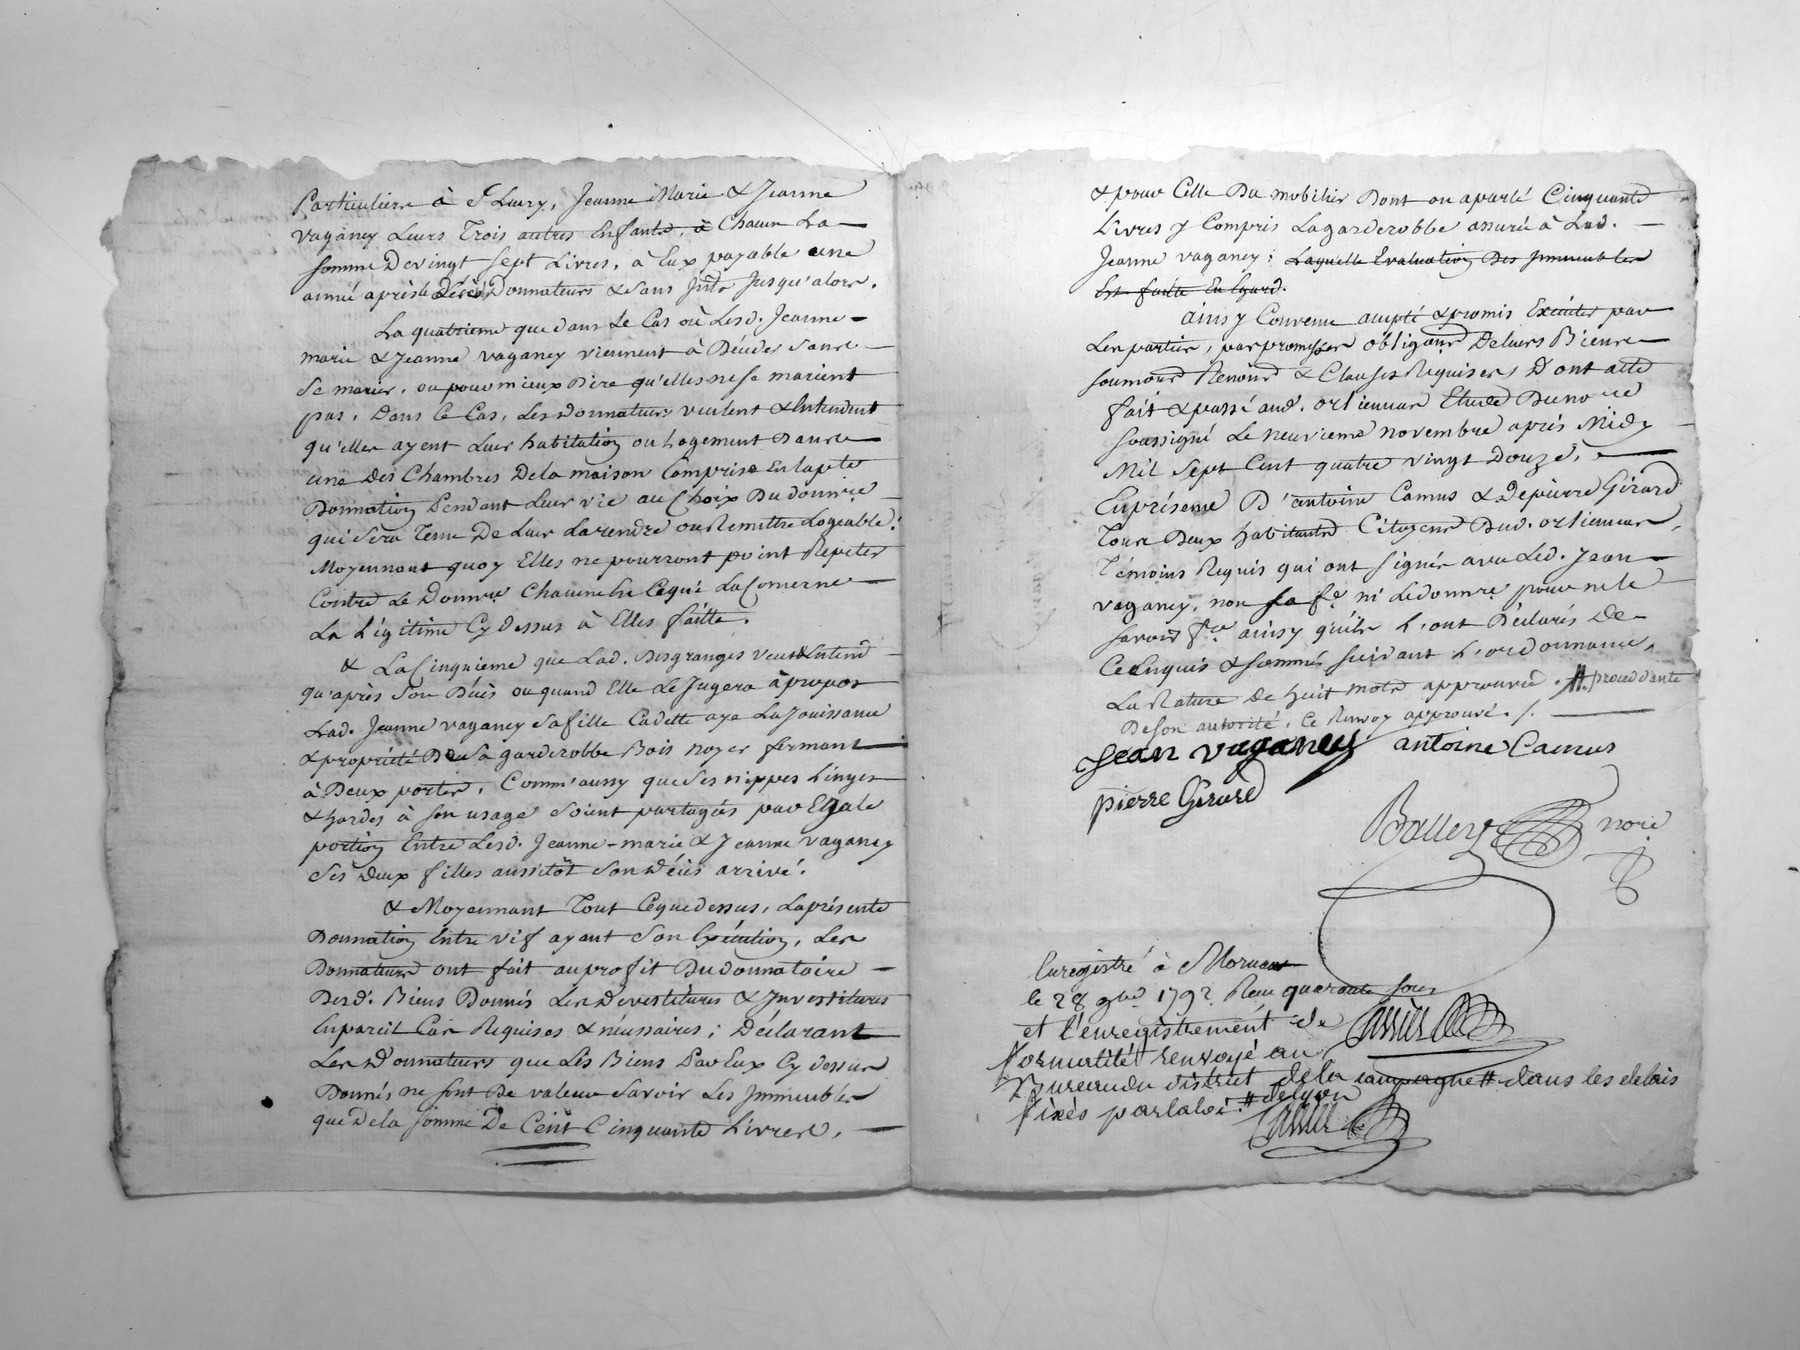 Particuliere à Fleury, Jeanne Marie & Jeanne
vaganey Leurs Trois autres Enfants, à Chacun La
somme De vingt sept Livres, à Eux payable une
année après le décès Donnateurs & sans Jnts Jusqu'alors.
La quatrieme que dans le Cas où Lesd. Jeanne-
marie & Jeanne vaganey viennent à Déceder sans
se marier, ou pour mieux Dire qu'elles ne se marient
pas, Dans Ce Cas, Les Donnateurs veulent & Entendent
qu'elles ayent Leur habitation ou Logement Dans
une Des Chambres De la maison Comprise En lapte
Donnation Pendant Leur vie au Choix Du donnre
qui sera Tenu De Leur La rendre ou Remettre Logeable:
Moyennant quoy Elles ne pourront point Repeter
Contre Le Donnre Chacune En Ce qui La Concerne
La Légitime Cy Dessus à Elles faitte.
& La Cinquieme que Lad. Desgranges veut & Entend
qu'après Son Décès ou quand Elle Le Jugera àpropos
Lad. Jeanne vaganey Sa fille Cadette aye La Jouissance
& propriété De Sa garderobbe Bois noyer fermant
à Deux portes, Comm'aussy que Ses nippes Linges
& hardes à son usage Soient partagés par Egale
portion Entre Lesd. Jeanne-marie & Jeanne vaganey
Ses deux filles aussitôt Son Décès arrivé.
& Moyennant Tout Ce que dessus, La présente
Donnation Entre vif ayant Son Exécution, Les
Donnateurs ont fait au profit Du donnataire
Desd. Biens Donnés Les Devestitures & Jnvestitures
En pareil Cas Requises & nécessaires; Déclarant
Les Donnateurs que Les Biens Par Eux Cy dessus
Donnés ne sont De valeur Savoir Les Jmmeubles
que De la somme De Cent Cinquante Livres,
& pour Celle Du mobilier Dont on a parlé Cinquante
Livres y Compris La garderobbe assurée à Lad.
Jeanne vaganey; Laquelle Evaluation Des Jmmeubles
Est faitte En Egard.
ainsy Convenu accepté & promis Exécuter par
Les parties, par promesses obligaon De Leurs Biens
soumons Renons & Clauses Requises, Dont acte
fait & passé aud. orlienas Etude Du nore
soussigné Le neuvieme novembre après Midy
Mil Sept Cent quatre vingt Douze,
En présence D'antoine Camus & De pierre Girard
Tous Deux habitants Citoyens Dud. orlienas,
Témoins Requis qui ont signés avec Led. Jean
vaganey, non sa fe ni Le donnre pour ne le
savoir fre ainsy qu'ils L'ont Déclarés De
Ce Enquis & sommés suivant L'ordonnance,
La Rature de huit mots approuvée. # procedante
De son autorité, Ce Renvoy approuvé. /.
Jean vaganey antoine Camus
pierre Girard
Balley nore
Enregistré à Mornant
le 28 9bre 1792 Reçu quarante sous
et l'enregistrement de
formalité renvoyé au
Bureau du district de la campagne # dans les delais
fixés par la loi. # de lyon